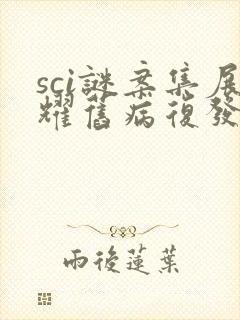 sci謎案集展
耀舊病復發
雨後蓮葉